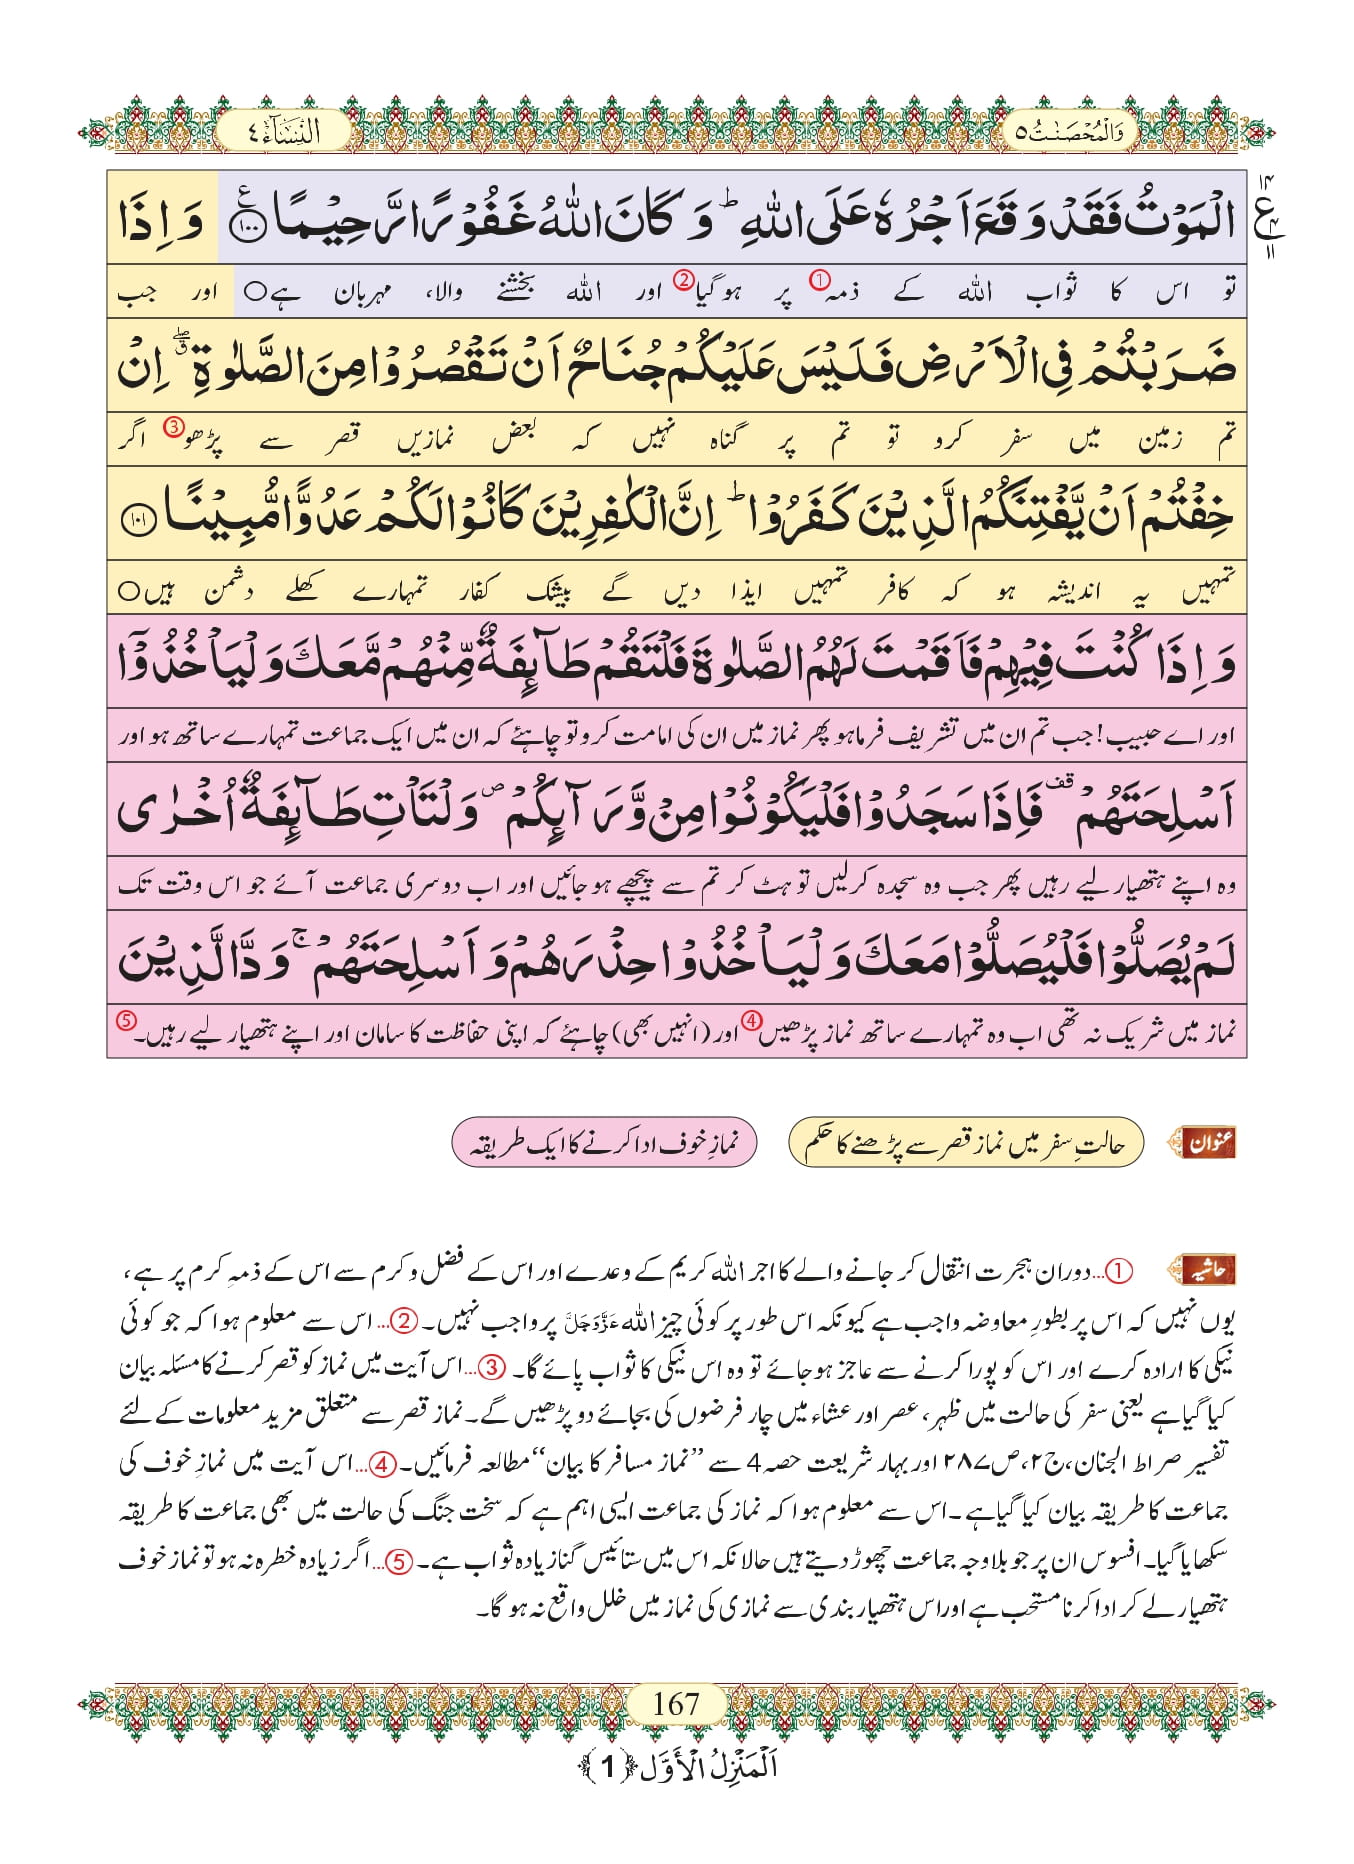 وَالْمُحْصَنٰتُ ٥
النِّسَآءُ ٤
١٤
ع
٤
١١
الْمَوْتُ فَقَدْ وَقَعَ اَجْرُهٗ عَلَى اللّٰهِؕ وَ كَانَ اللّٰهُ غَفُوْرًا رَّحِیْمًا۠ ۝۱۰۰ وَ اِذَا
تو اس کا ثواب اللہ کے ذمہ① پر ہوگیا② اور اللہ بخشنے والا، مہربان ہے○ اور جب
ضَرَبْتُمْ فِی الْاَرْضِ فَلَیْسَ عَلَیْكُمْ جُنَاحٌ اَنْ تَقْصُرُوْا مِنَ الصَّلٰوةِ ﳓ اِنْ
تم زمین میں سفر کرو تو تم پر گناہ نہیں کہ بعض نمازیں قصر سے پڑھو③ اگر
خِفْتُمْ اَنْ یَّفْتِنَكُمُ الَّذِیْنَ كَفَرُوْاؕ اِنَّ الْكٰفِرِیْنَ كَانُوْا لَكُمْ عَدُوًّا مُّبِیْنًا ۝۱۰۱
تمہیں یہ اندیشہ ہو کہ کافر تمہیں ایذا دیں گے بیشک کفار تمہارے کھلے دشمن ہیں○
وَ اِذَا كُنْتَ فِیْهِمْ فَاَقَمْتَ لَهُمُ الصَّلٰوةَ فَلْتَقُمْ طَآىٕفَةٌ مِّنْهُمْ مَّعَكَ وَ لْیَاْخُذُوْۤا
اور اے حبیب! جب تم ان میں تشریف فرما ہو پھر نماز میں ان کی امامت کرو تو چاہئے کہ ان میں ایک جماعت تمہارے ساتھ ہو اور
اَسْلِحَتَهُمْ قف فَاِذَا سَجَدُوْا فَلْیَكُوْنُوْا مِنْ وَّرَآىٕكُمْ ص وَ لْتَاْتِ طَآىٕفَةٌ اُخْرٰى
وہ اپنے ہتھیار لیے رہیں پھر جب وہ سجدہ کرلیں تو ہٹ کر تم سے پیچھے ہوجائیں اور اب دوسری جماعت آئے جو اس وقت تک
لَمْ یُصَلُّوْا فَلْیُصَلُّوْا مَعَكَ وَ لْیَاْخُذُوْا حِذْرَهُمْ وَ اَسْلِحَتَهُمْۚ وَدَّ الَّذِیْنَ
نماز میں شریک نہ تھی اب وہ تمہارے ساتھ نماز پڑھیں④ اور (انہیں بھی) چاہئے کہ اپنی حفاظت کا سامان اور اپنے ہتھیار لیے رہیں۔⑤
عنوان حالتِ سفر میں نماز قصر سے پڑھنے کا حکم نمازِ خوف ادا کرنے کا ایک طریقہ
حاشیہ ①...دوران ہجرت انتقال کر جانے والے کا اجر اللہ کریم کے وعدے اور اس کے فضل و کرم سے اس کے ذمہِ کرم پر ہے،
یوں نہیں کہ اس پر بطورِ معاوضہ واجب ہے کیونکہ اس طور پر کوئی چیز اللہ عَزَّوَجَلَّ پر واجب نہیں۔ ②...اس سے معلوم ہوا کہ جو کوئی
نیکی کا ارادہ کرے اور اس کو پورا کرنے سے عاجز ہوجائے تو وہ اس نیکی کا ثواب پائے گا۔ ③...اس آیت میں نماز کو قصر کرنے کا مسئلہ بیان
کیا گیا ہے یعنی سفر کی حالت میں ظہر، عصر اور عشاء میں چار فرضوں کی بجائے دو پڑھیں گے۔ نماز قصر سے متعلق مزید معلومات کے لئے
تفسیر صراط الجنان،ج۲،ص۲۸۷ اور بہار شریعت حصہ 4 سے ’’نماز مسافر کا بیان‘‘ مطالعہ فرمائیں۔ ④...اس آیت میں نمازِ خوف کی
جماعت کا طریقہ بیان کیا گیا ہے۔ اس سے معلوم ہوا کہ نماز کی جماعت ایسی اہم ہے کہ سخت جنگ کی حالت میں بھی جماعت کا طریقہ
سکھایا گیا۔ افسوس ان پر جو بلاوجہ جماعت چھوڑ دیتے ہیں حالانکہ اس میں ستائیس گنا زیادہ ثواب ہے۔ ⑤...اگر زیادہ خطرہ نہ ہو تو نماز خوف
ہتھیار لے کر ادا کرنا مستحب ہے اور اس ہتھیار بندی سے نمازی کی نماز میں خلل واقع نہ ہو گا۔
167
اَلْمَنْزِلُ الْأَوَّل ﴿1﴾